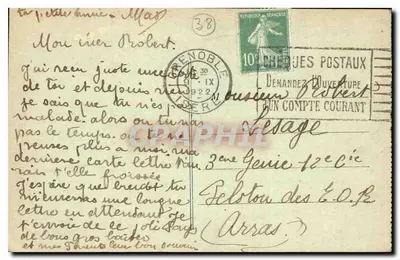 ta petite
Mon cher Robert.
J'ai reçu juste une
de toi et depuis rien
je sais que tu n'es
malade alors ou tu n'as
pas le temps. ou tu ne
penses plus à moi ma
dernière carte lettre
t'elle froissée
J'espère que bientôt tu
m'enverras une longue
lettre en attendant je
t'envoie de ce joli Pays
de bons gros baisers
et mes Parents leur bon souvenir
38
GRENOBLE
IX
1922
ISERE
REPUBLIQUE FRANÇAISE
10
CHEQUES POSTAUX
DEMANDEZ L'OUVERTURE
D'UN COMPTE COURANT
Monsieur Robert
Lesage
3eme Génie 12e Cie
Peloton des E.O.R
(Arras)
CPARAMA.COM